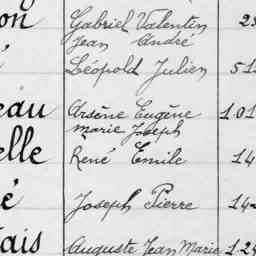 on Gabriel Valentin 25
Jean André
é Léopold Julien 51
eau Arsène Eugène 101
marie Joseph
elle René Emile 14
é Joseph Pierre 14
ais Auguste Jean Marie 124